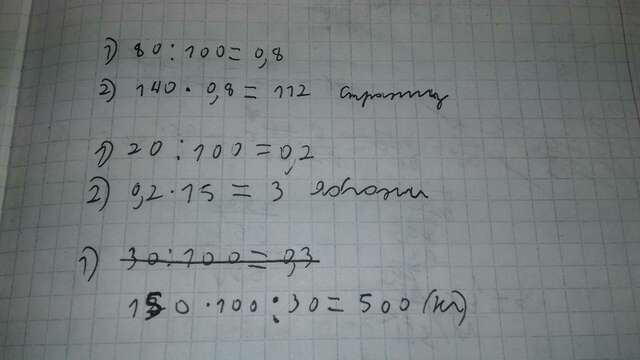 1) 80 : 100 = 0,8
2) 140 · 0,8 = 112 страниц
1) 20 : 100 = 0,2
2) 0,2 · 15 = 3 яблони
1) 30 : 100 = 0,3
150 · 100 : 30 = 500 (кг)